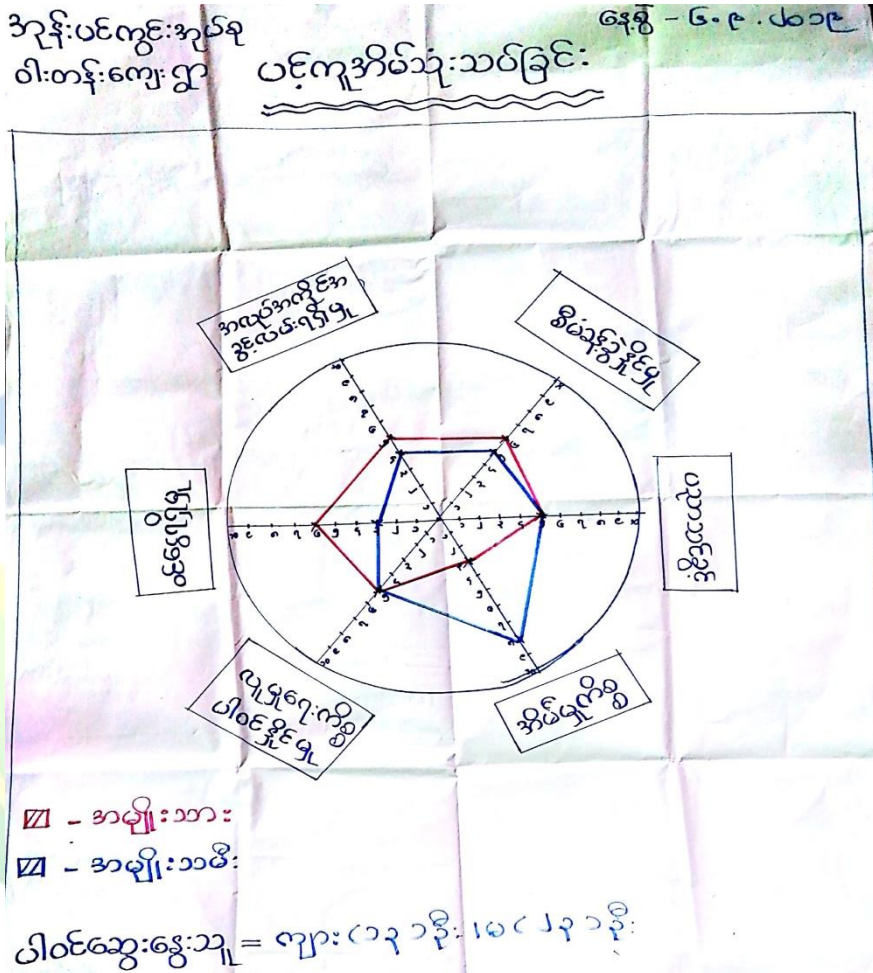 အုန်းပင်ကွင်းအုပ်စု
ဝါးတန်းကျေးရွာ
နေ့စွဲ - ၆.၉.၂၀၁၉
ပင့်ကူအိမ်သုံးသပ်ခြင်း
အလုပ်အကိုင်အ
ခွင့်လမ်းရရှိမှု
စီမံခန့်ခွဲနိုင်မှု
ဝင်ငွေရရှိမှု
ပညာရေး
လူမှုရေးကိစ္စ
ပါဝင်နိုင်မှု
အိမ်မှုကိစ္စ
- အမျိုးသား
- အမျိုးသမီး
ပါဝင်ဆွေးနွေးသူ = ကျား(၁၃)ဦး၊မ(၂၃)ဦး